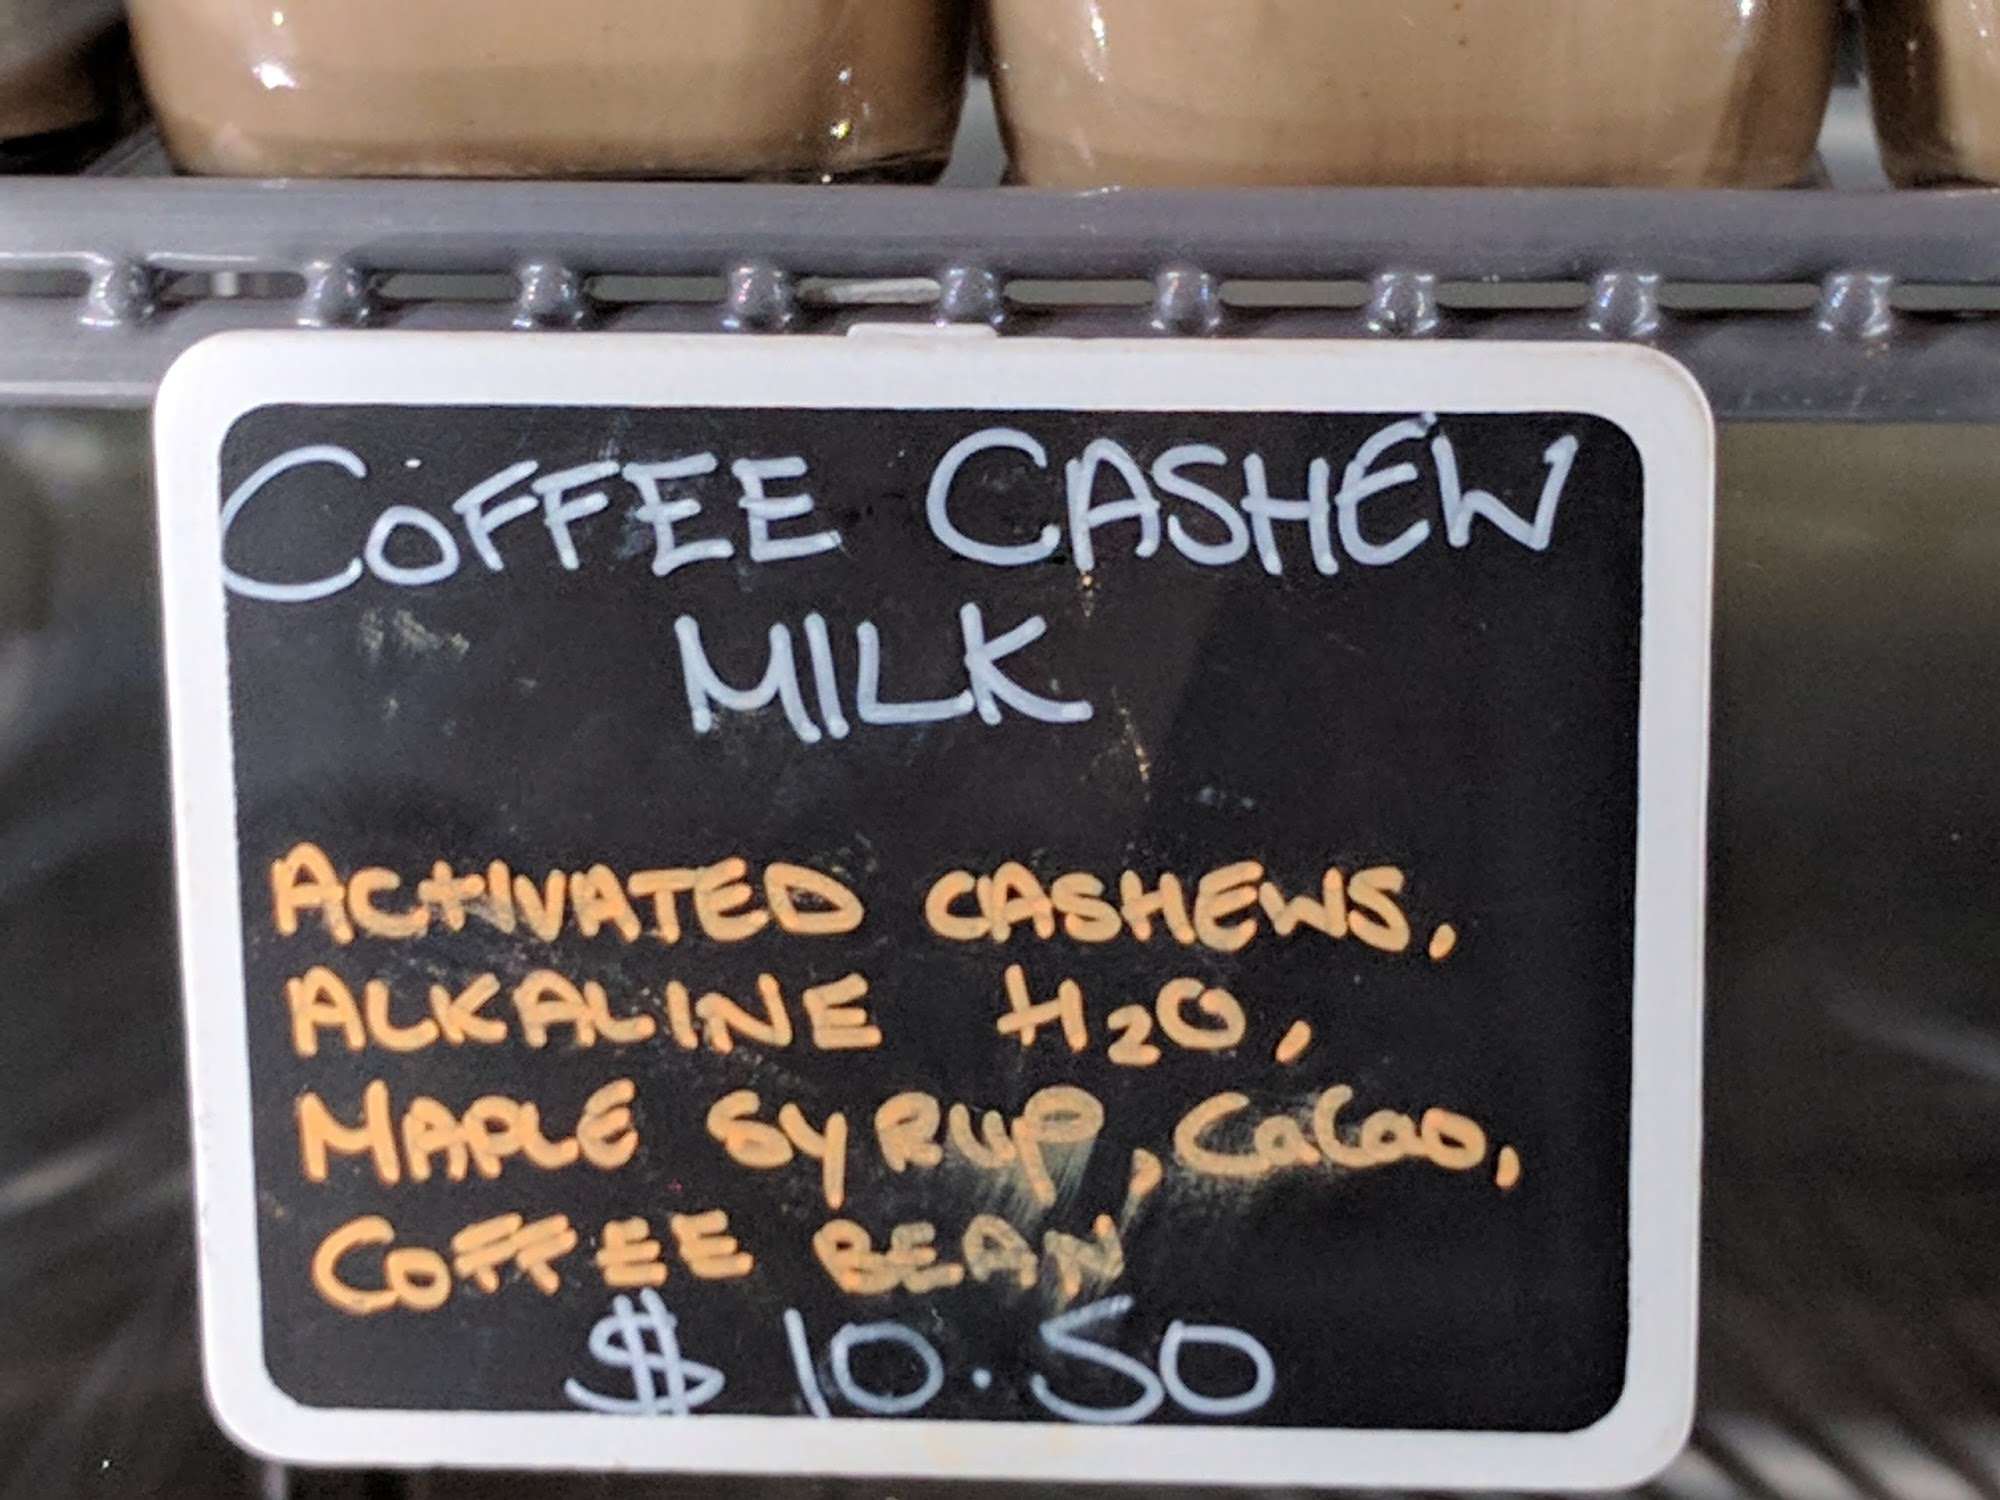 COFFEE CASHEW
MILK
ACTIVATED CASHEWS,
ALKALINE H₂O,
MAPLE SYRUP, CaCao,
COFFEE BEAN
$10.50